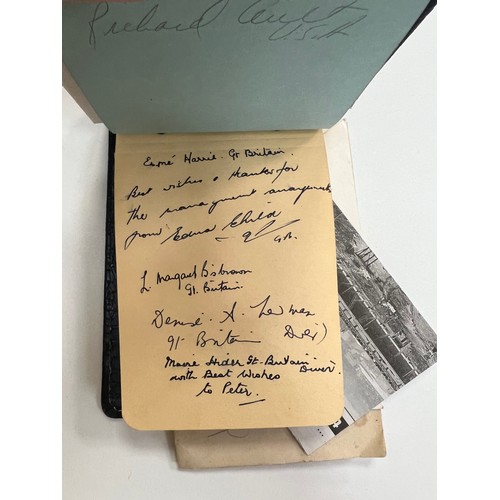 Richard
U.S.A.
Esmé Harris. Gt Britain.
Best wishes & thanks for
the management arrangements
from Edna Child
G.B.
L. Margaret Bisbrown
Gt. Britain.
Denise. A.
Gt Britain Diver)
Maire Hider Gt-Britain Diver.
with Best Wishes
to Peter.